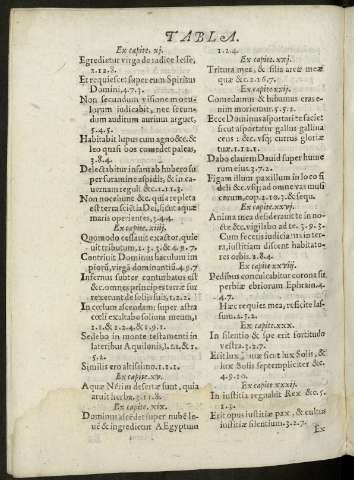 TABLA.
Ex capite. xj.
Egredietur virga de radice Iesse,
2.12.8.
Et requiescet super eum Spiritus
Domini, 4.7.3.
Non secundum visione mocu-
lorum iudicabit, nec secun-
dum auditum aurium arguet,
5.4.5.
Habitabit lupus cum agno &c. &
leo quasi bos comedet paleas,
3.8.4.
Delectabitur infans ab hubero su
per foramine aspidis, & in ca-
uernam reguli &c. 1.11.3.
Non nocebunt &c. quia repleta
est terra scientia Dei, sicut aquæ
maris operientes, 3.4.4.
Ex capite. xiiij.
Quomodo cessauit exactor, quie
uit tributum, 1.2.3. & 4.9.7.
Contriuit Dominus baculum im
piorū, virgā dominantiū. 4.9.7
Infernus subter conturbatus est
&c. omnes principes terræ sur
rexerunt de solijs suis, 1.2.2.
In cœlum ascendam super astra
cœli exaltabo solium meum, 1
1.1. & 1.2.4. & 1.9.1.
Sedebo in monte testamenti in
lateribus Aquilonis, 1.2.1. & 1.
5.2.
Similis ero altissimo. 1.1.1.
Ex capite. xv.
Aquæ Nēmin desertæ sunt, quia
aruit herba. 3.11.8.
Ex capite. xix.
Dominus ascēdet super nubē le-
uē & ingredietur AEgyptum
1.2.4.
Ex capite. xxj.
Tritura mea, & filia areæ meæ
quæ &c. 2.26.7.
Ex capite. xxij.
Comedamus & bibamus cras e-
nim moriemur. 5.5.2.
Ecce Dominus asportari te faciet
sicut asportatur gallus gallina
ceus: &c. vsq; currus gloriæ
tuæ. 1.12.1.
Dabo clauem Dauid super hume
rum eius. 3.7.2.
Figam illum paxillum in loco fi
deli &c. vsq; ad omne vas musi
corum, cop. 2.10.3. & sequ.
Ex capite. xxvj.
Anima mea desiderauit te in no-
cte &c. vigilabo ad te. 3.9.3.
Cum feceris iudicia tua in ter-
ra, iustitiam discent habitato-
res orbis. 2.8.4.
Ex capite. xxviij.
Pedibus conculcabitur corona su
perbiæ ebriorum Ephraim. 4.
4.7.
Hæc requies mea, reficite las-
sum. 2.5.2.
Ex capite. xxx.
In silentio & spe erit fortitudo
vestra. 3.2.7.
Erit lux lunæ sicut lux Solis, &
lux Solis septempliciter &c.
4.5.20.
Ex capite. xxxij.
In iustitia regnabit Rex &c. 5.
1.3.
Erit opus iustitiæ pax, & cultus
iustitiæ silentium. 3.2.7.
Ex